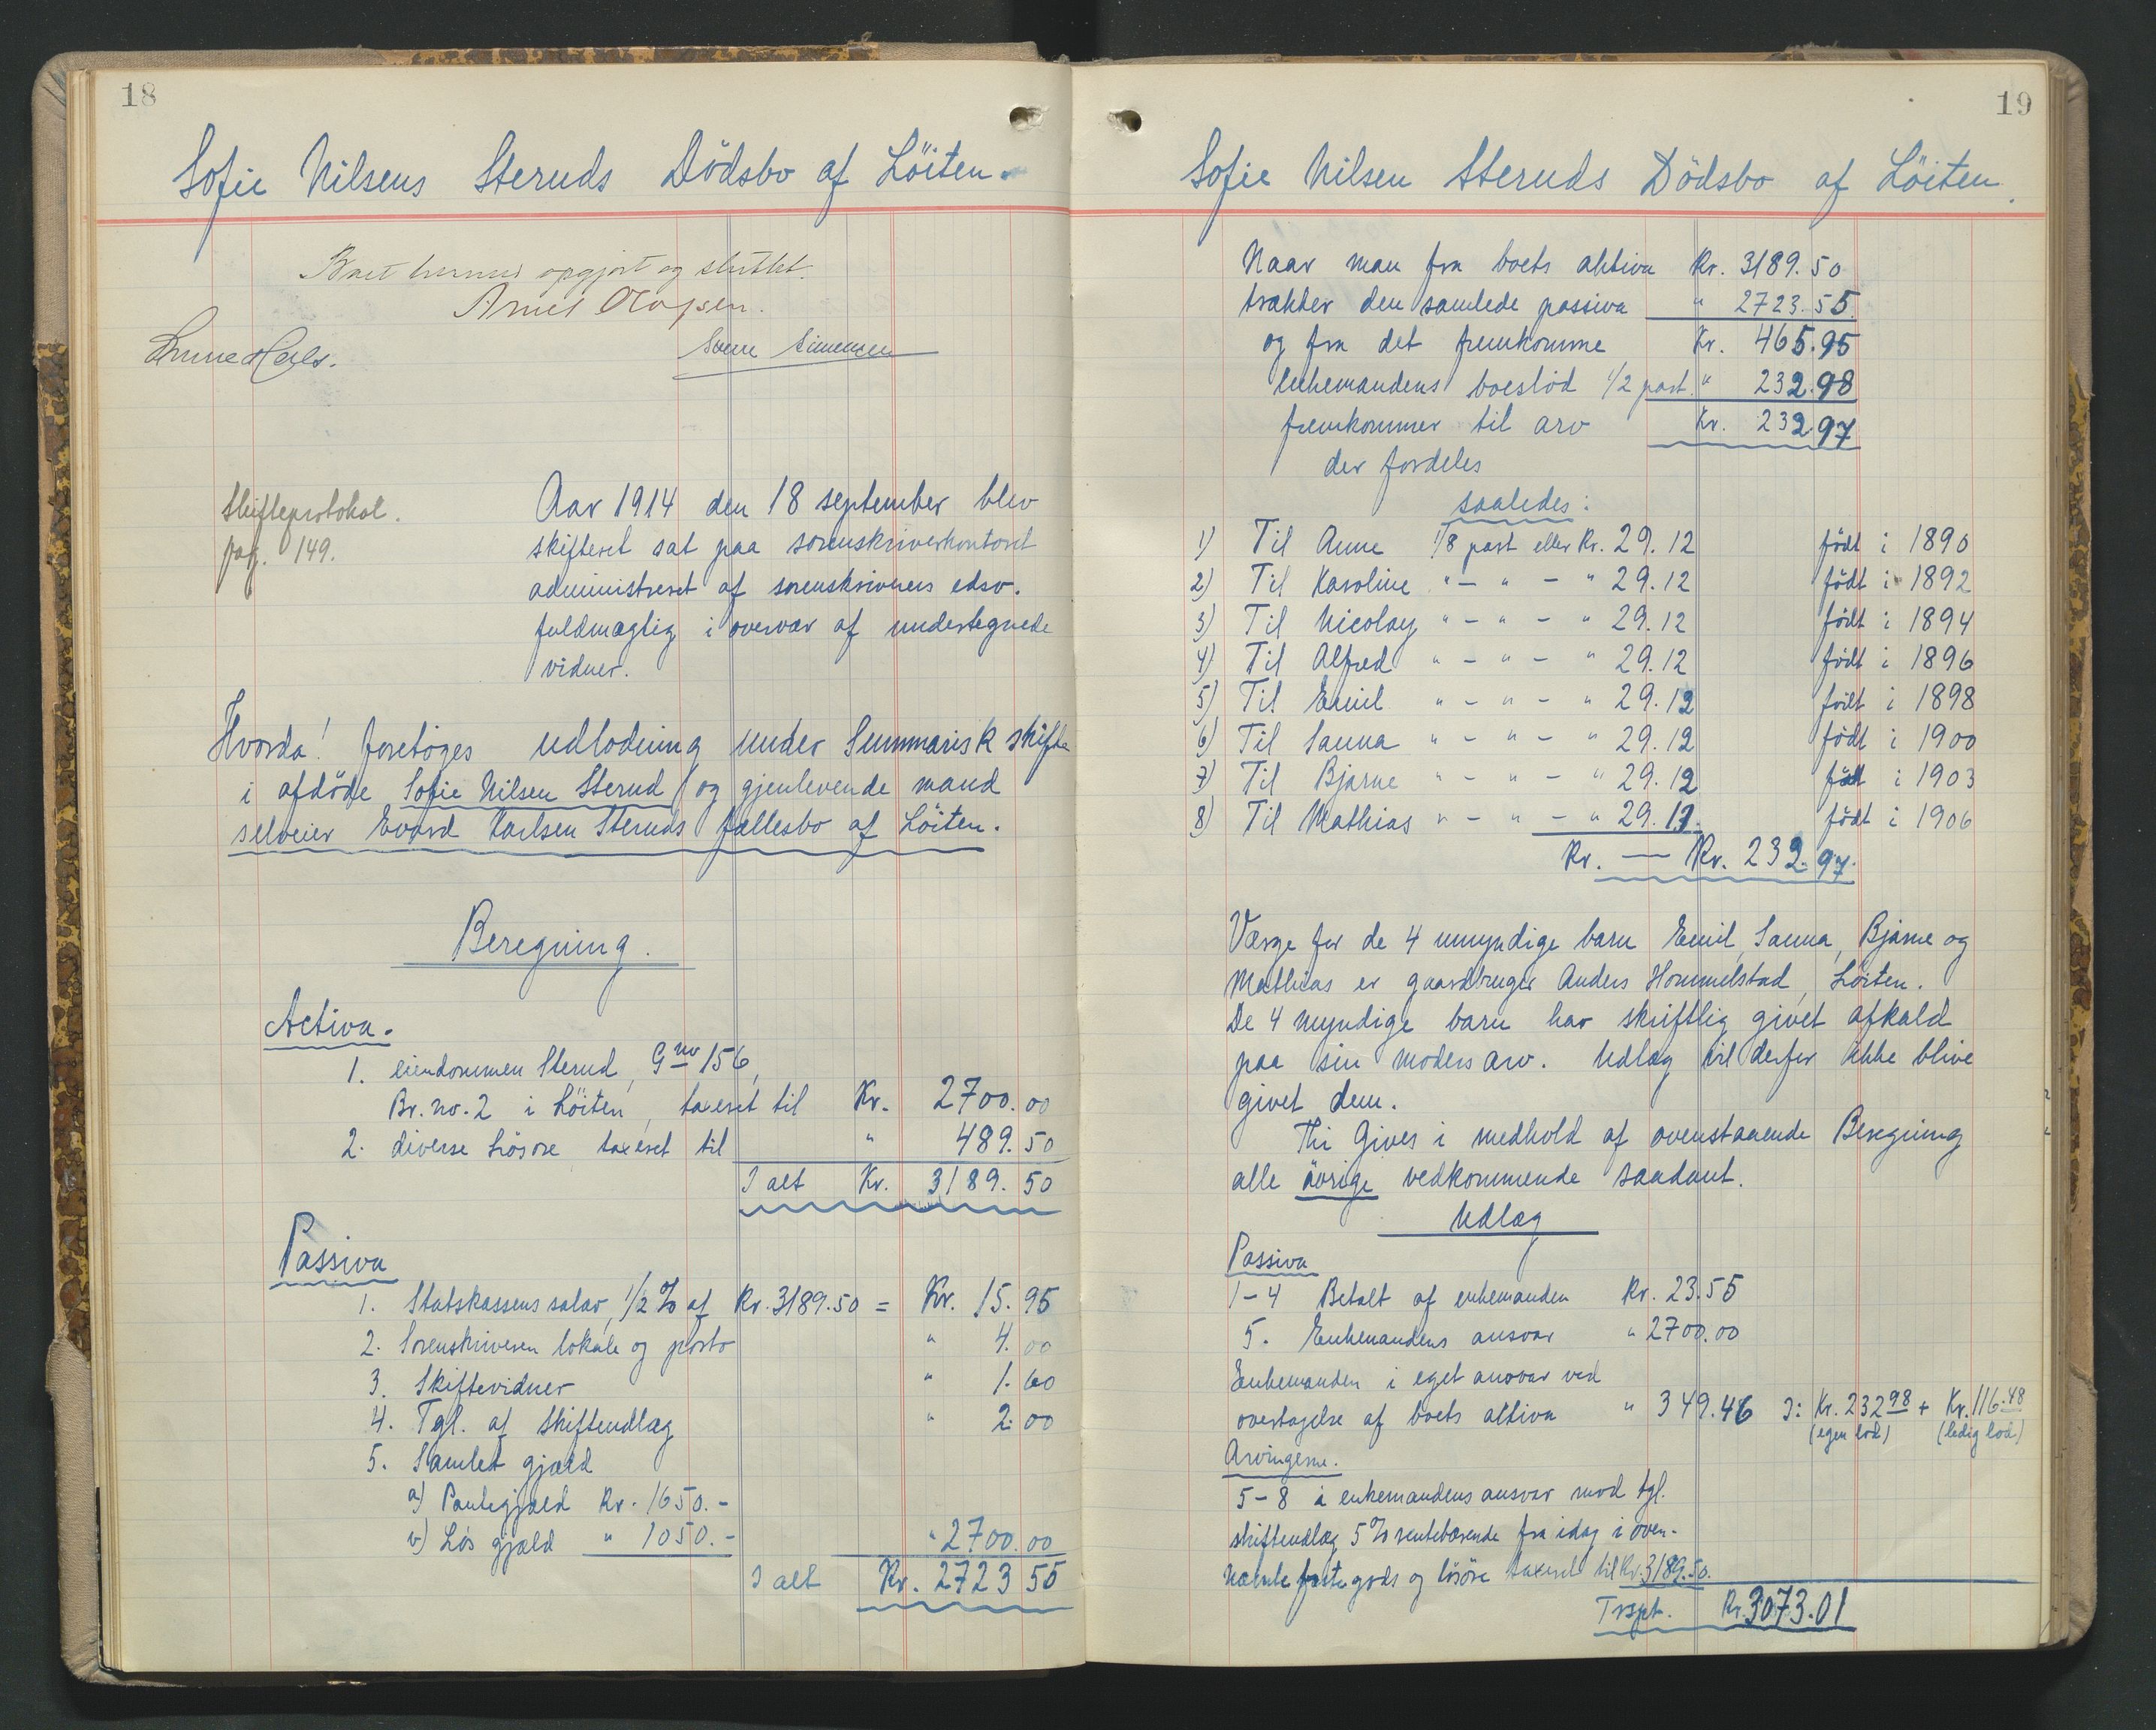 18
Sofie Nilsens Steruds Dödsbo af Löiten.
Boet hermed opgjort og sluttet.
Arnet Olapsen.
Simensen
Skifteprotokol.
pag. 149.
Aar 1914 den 18 september blev
skifteret sat paa sorenskriverkontoret
administreret af sorenskriverens edsv.
fuldmægtig i overvær af undertegnede
vidner.
Hvorda! foretöges udlodning under Summarisk skifte
i afdöde Sofie Nilsen Sterud og gjenlevende mand
selveier Evard Karlsen Steruds fællesbo af Löiten.
Beregning.
Activa.
1. eiendommen Sterud, Gnr 156,
Br. no. 2 i Löiten, taxeret til Kr. 2700.00
2. diverse Lösöre taxeret til " 489.50
I alt Kr. 3189.50
Passiva
1. Statskassens salær, 1/2 % af Kr. 3189.50 = Kr. 15.95
2. Sorenskriveren lokale og porto " 4.00
3. Skiftevidner " 1.60
4. Tgl. af Skifteudlæg " 2.00
5. Samlet gjæld
a) Pantegjæld Kr. 1650.-
b) Lös gjæld " 1050.- " 2700.00
I alt Kr. 2723 55
19
Sofie Nilsen Steruds Dödsbo af Löiten.
Naar man fra boets aktiva Kr. 3189.50
trækker den samlede passiva " 2723.55
og fra det fremkomme Kr. 465.95
enkemandens boeslod 1/2 part " 232.98
fremkommer til arv Kr. 232.97
der fordeles
saaledes:
1) Til Anne 1/8 part eller Kr. 29.12 födt i 1890
2) Til Karoline " - " - " 29.12 födt i 1892
3) Til Nicolay " - " - " 29.12 födt i 1894
4) Til Alfred " - " - " 29.12 födt i 1896
5) Til Emil " - " - " 29.12 födt i 1898
6) Til Sanna " - " - " 29.12 födt i 1900
7) Til Bjarne " - " - " 29.12 födt i 1903
8) Til Mathias " - " - " 29.13. födt i 1906
Kr. — Kr. 232.97.
Værge for de 4 umyndige barn Emil, Sanna, Bjarne og
Mathias er gaardbruger Anders Hommelstad, Löiten.
De 4 myndige barn har skriftlig givet afkald
paa sin moders arv. Udlæg vil derfor ikke blive
givet dem.
Thi Gives i medhold af ovenstaaende Beregning
alle övrige vedkommende saadant.
Udlæg
Passiva
1-4 Betalt af enkemanden Kr. 23.55
5. Enkemandens ansvar " 2700.00
Enkemanden i eget ansvar ved
overtagelse af boets aktiva " 349.46 ɔ: Kr. 232.98 + Kr. 116.48
(egen lod) (ledig lod)
Arvingerne.
5-8 i enkemandens ansvar mod tgl.
skifteudlæg 5% rentebærende fra idag i oven-
nævnte faste gods og lösöre taxeret til Kr. 3189.50.
Trspt. Kr. 3073.01